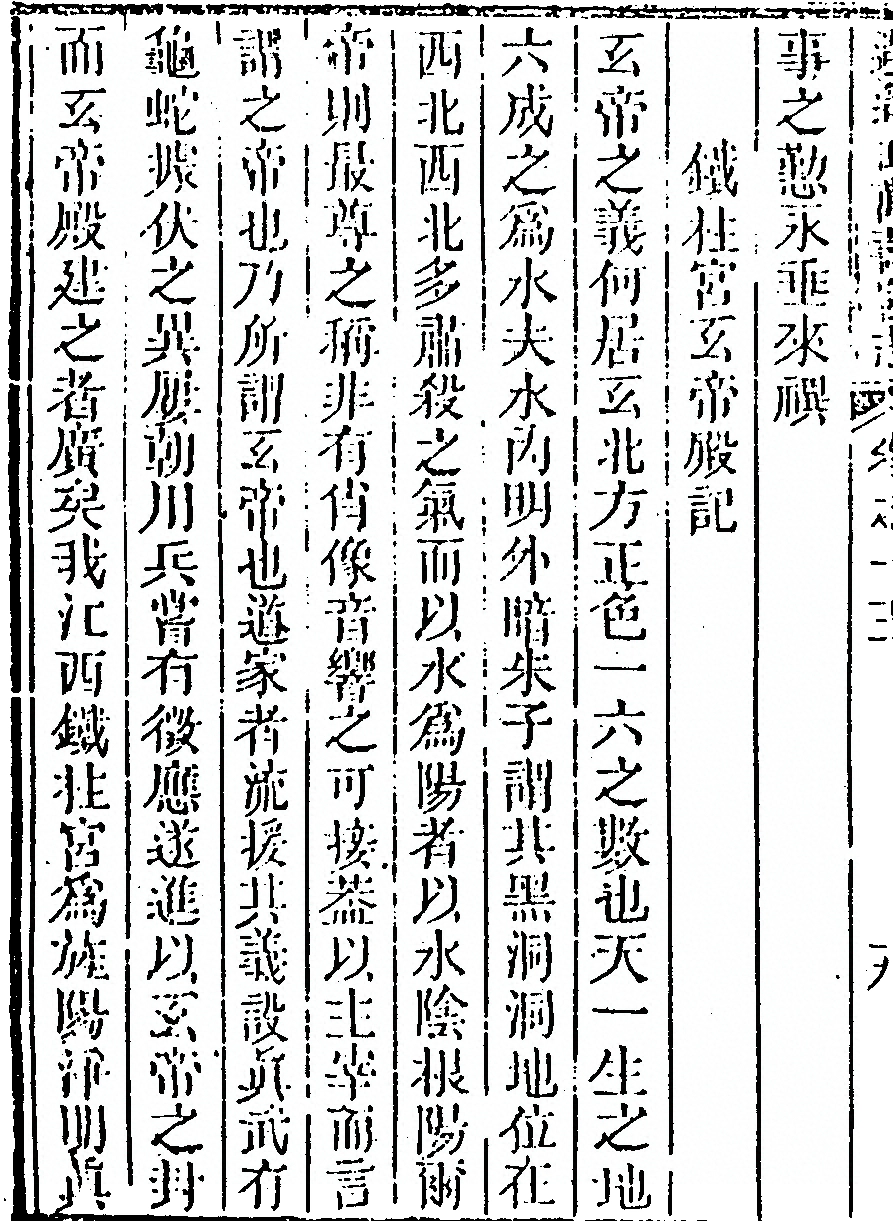 事之懃永垂來禩
鐵柱宮玄帝殿記
玄帝之義何居玄北方正色一六之數也天一生之地
六成之爲水夫水內明外暗朱子謂其黑洞洞地位在
西北西北多肅殺之氣而以水爲陽者以水陰根陽爾
帝則最尊之稱非有肖像音響之可接葢以主宰而言
謂之帝也乃所謂玄帝也道家者流援其義設眞武有
龜蛇據伏之異歷朝用兵嘗有徵應遂進以玄帝之封
而玄帝殿建之者廣矣我江西鐵柱宮爲旌陽淨明眞